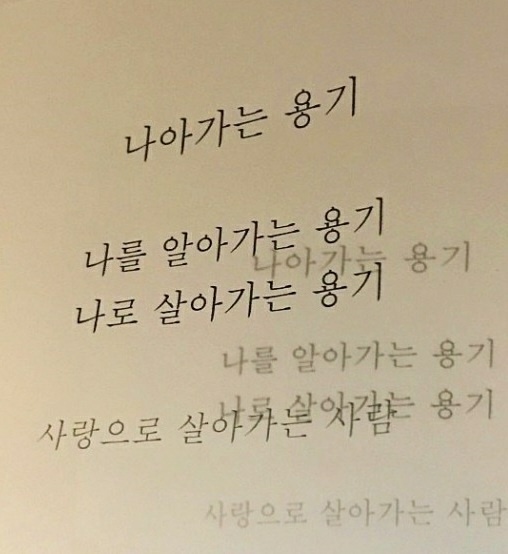 나아가는 용기
나를 알아가는 용기
나아가는 용기
나로 살아가는 용기
나를 알아가는 용기
나로 살아가는 용기
사랑으로 살아가는 사람
사랑으로 살아가는 사람